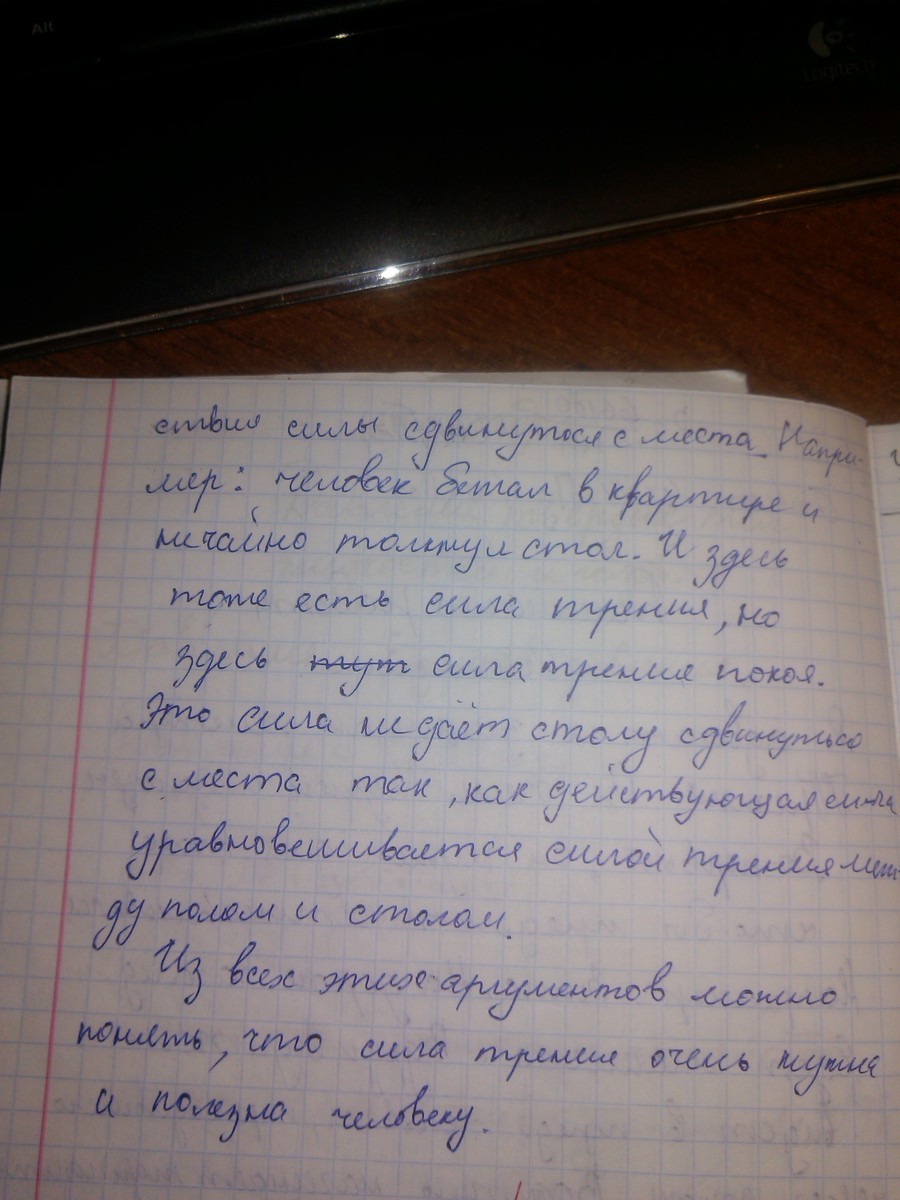 Alt
Logitech
ствия силы сдвинуться с места. Напри-
мер: человек бегал в квартире и
ничайно толкнул стол. И здесь
тоже есть сила трения, но
здесь тут сила трения покоя.
Это сила не даёт столу сдвинуться
с места так, как действующая сила
уравновешивается силой трения меж
ду полом и столом.
Из всех этих аргументов можно
понять, что сила трения очень нужна
и полезна человеку.